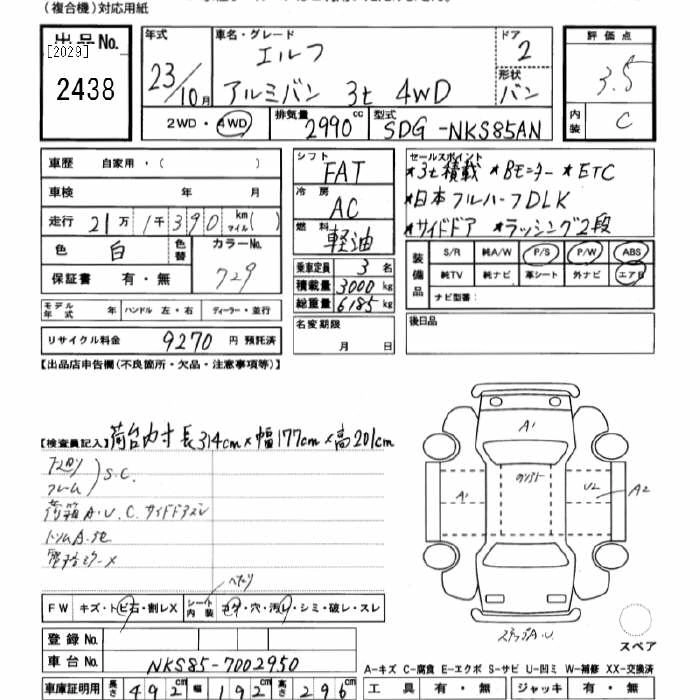 (複合機)対応用紙
出品No. [2029] 2438
年式 23/10月
車名・グレード エルフ アルミバン 3t 4WD
ドア 2
形状 バン
評価点 3.5
内装 C
2WD・4WD
排気量 2990cc
型式 SDG-NKS85AN
車歴 自家用・( )
車検 年 月
走行 21万1千390km マイル( )
色 白 色替 カラーNo. 729
保証書 有・無
モデル年式 年 ハンドル 左・右 ディーラー・並行
リサイクル料金 9270円 預託済
シフト FAT
冷房 AC
燃料 軽油
乗車定員 3名
積載量 3000kg
総重量 6185kg
名変期限 月 日
セールスポイント
★3t積載 ★Bモニター ★ETC
★日本フルハーフDLK
★サイドドア ★ラッシング2段
装備品 S/R 純A/W P/S P/W ABS
純TV 純ナビ 革シート 外ナビ エアB
ナビ型番:
後日品
【出品店申告欄(不良箇所・欠品・注意事項等)】
【検査員記入】荷台内寸 長314cm×幅177cm×高201cm
フレーム S.C.
荷箱A.U.C.サイドドアスレ
電格ミラー×
A1
A1
U2
A2
ステップA.U
スペア
FW キズ・トビ石・割レX シート内装 コゲ・穴・汚レ・シミ・破レ・スレ
ヘタリ
登録No.
車台No. NKS85-7002950
車庫証明用 長さ492cm 幅192cm 高さ296cm
A-キズ C-腐食 E-エクボ S-サビ U-凹ミ W-補修 XX-交換済
工具 有・無 ジャッキ 有・無